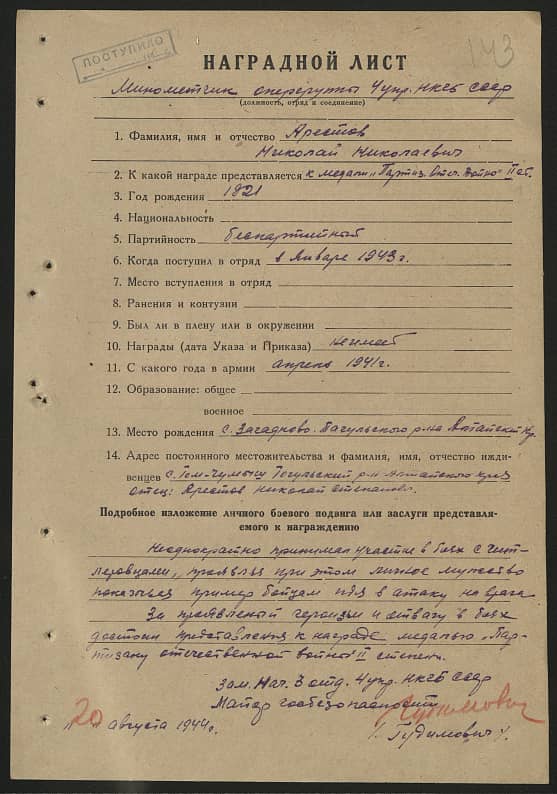 ПОСТУПИЛО
143
НАГРАДНОЙ ЛИСТ
Минометчик опергруппы 4 упр. НКГБ СССР
(должность, отряд и соединение)
1. Фамилия, имя и отчество Арестов
Николай Николаевич
2. К какой награде представляется к медали „Партиз. Отеч. Войны" II ст.
3. Год рождения 1921
4. Национальность
5. Партийность беспартийный
6. Когда поступил в отряд в Январе 1943 г.
7. Место вступления в отряд
8. Ранения и контузии
9. Был ли в плену или в окружении
10. Награды (дата Указа и Приказа) не имеет
11. С какого года в армии апрель 1941 г.
12. Образование: общее
военное
13. Место рождения с. Тагульского р-на Алтайский кр.
14. Адрес постоянного местожительства и фамилия, имя, отчество ижди-
венцев Тогульский р-н Алтайского края
отец: Арестов Николай Степанович
Подробное изложение личного боевого подвига или заслуги представля-
емого к награждению
Неоднократно принимал участие в боях с гит-
леровцами, проявляя при этом личное мужество
показывая пример бойцам идя в атаку на врага
За проявленый героизм и отвагу в боях
достоин представления к награде медалью „Пар-
тизану отечественной войны" II степени.
Зам. Нач. 3 отд. 4 упр. НКГБ СССР
Майор госбезопасности
"20" августа 1944 г. Гудимович